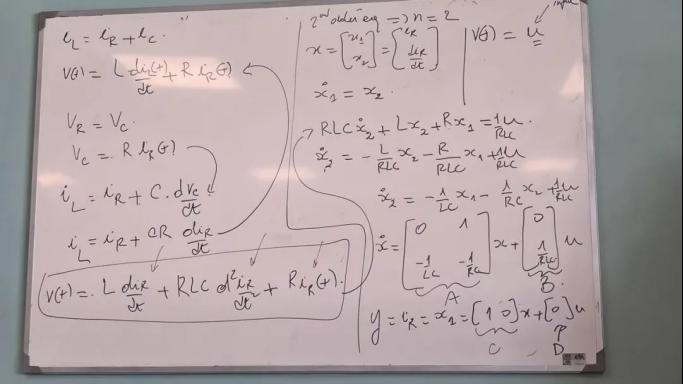 i_L = i_R + i_C.
V(t) = L di_L(t)/dt + R i_R(t)
V_R = V_C.
V_C = R i_R(t)
i_L = i_R + C. dv_C/dt
i_L = i_R + CR di_R/dt
V(t) = L di_R/dt + RLC d²i_R/dt² + R i_R(t).
2nd order eq => n = 2
x = [x_1 x_2] = [i_R di_R/dt]
ẋ_1 = x_2
RLC ẋ_2 + Lx_2 + Rx_1 = 1/RLC u.
ẋ_2 = - L/RLC x_2 - R/RLC x_1 + 1/RLC u
ẋ_2 = - 1/LC x_1 - 1/RC x_2 + 1/RLC u
ẋ = [0 1 -1/LC -1/RC] x + [0 1/RLC] u
A B.
y = i_R = x_1 = [1 0] x + [0] u
C D
V(t) = u
input